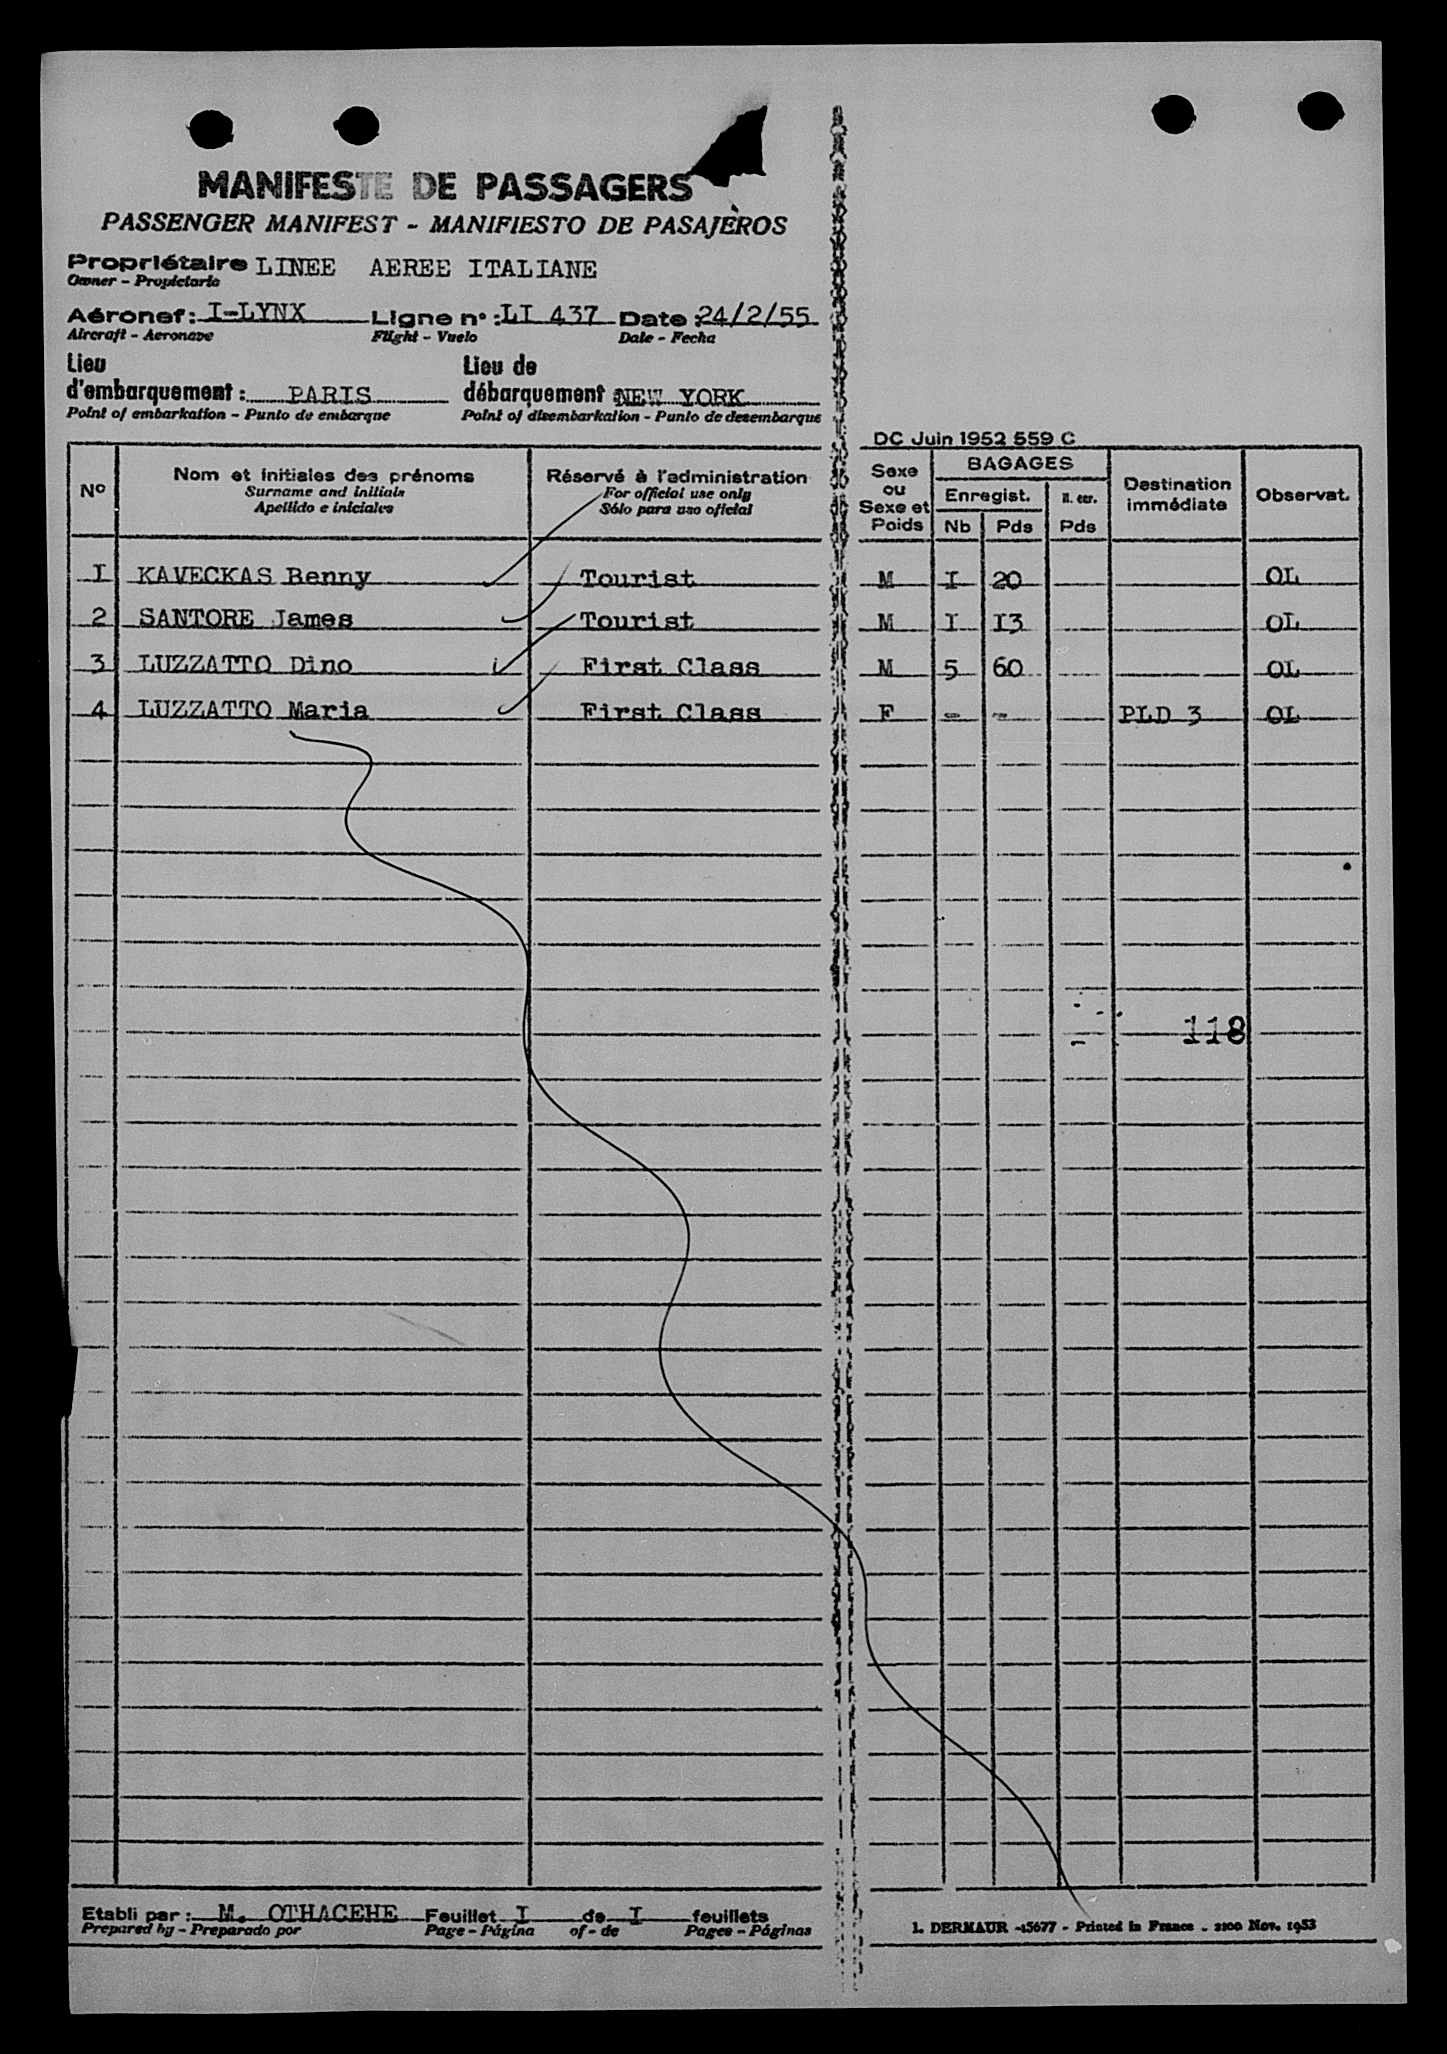 MANIFESTE DE PASSAGERS
PASSENGER MANIFEST - MANIFIESTO DE PASAJEROS
Propriétaire LINEE AEREE ITALIANE
Owner - Propietario
Aéronef: I-LYNX Ligne n° : LI 437 Date : 24/2/55
Aircraft - Aeronave Flight - Vuelo Date - Fecha
Lieu Lieu de
d'embarquement : PARIS débarquement : NEW YORK
Point of embarkation - Punto de embarque Point of disembarkation - Punto de desembarque
DC Juin 1952 559 C
N° Nom et initiales des prénoms Réservé à l'administration Sexe ou Sexe et Poids BAGAGES Destination immédiate Observat.
Surname and initials For official use only Enregist.
Apellido e iniciales Sólo para uso oficial Nb Pds Pds
I KAVECKAS Benny Tourist M I 20 OL
2 SANTORE James Tourist M I I3 OL
3 LUZZATTO Dino First Class M 5 60 OL
4 LUZZATTO Maria First Class F - - PLD 3 OL
118
Etabli par : M. OTHACEHE Feuillet I de I feuillets
Prepared by - Preparado por Page - Página of - de Pages - Páginas
L. DERMAUR -15677 - Printed in France - 2100 Nov. 1953